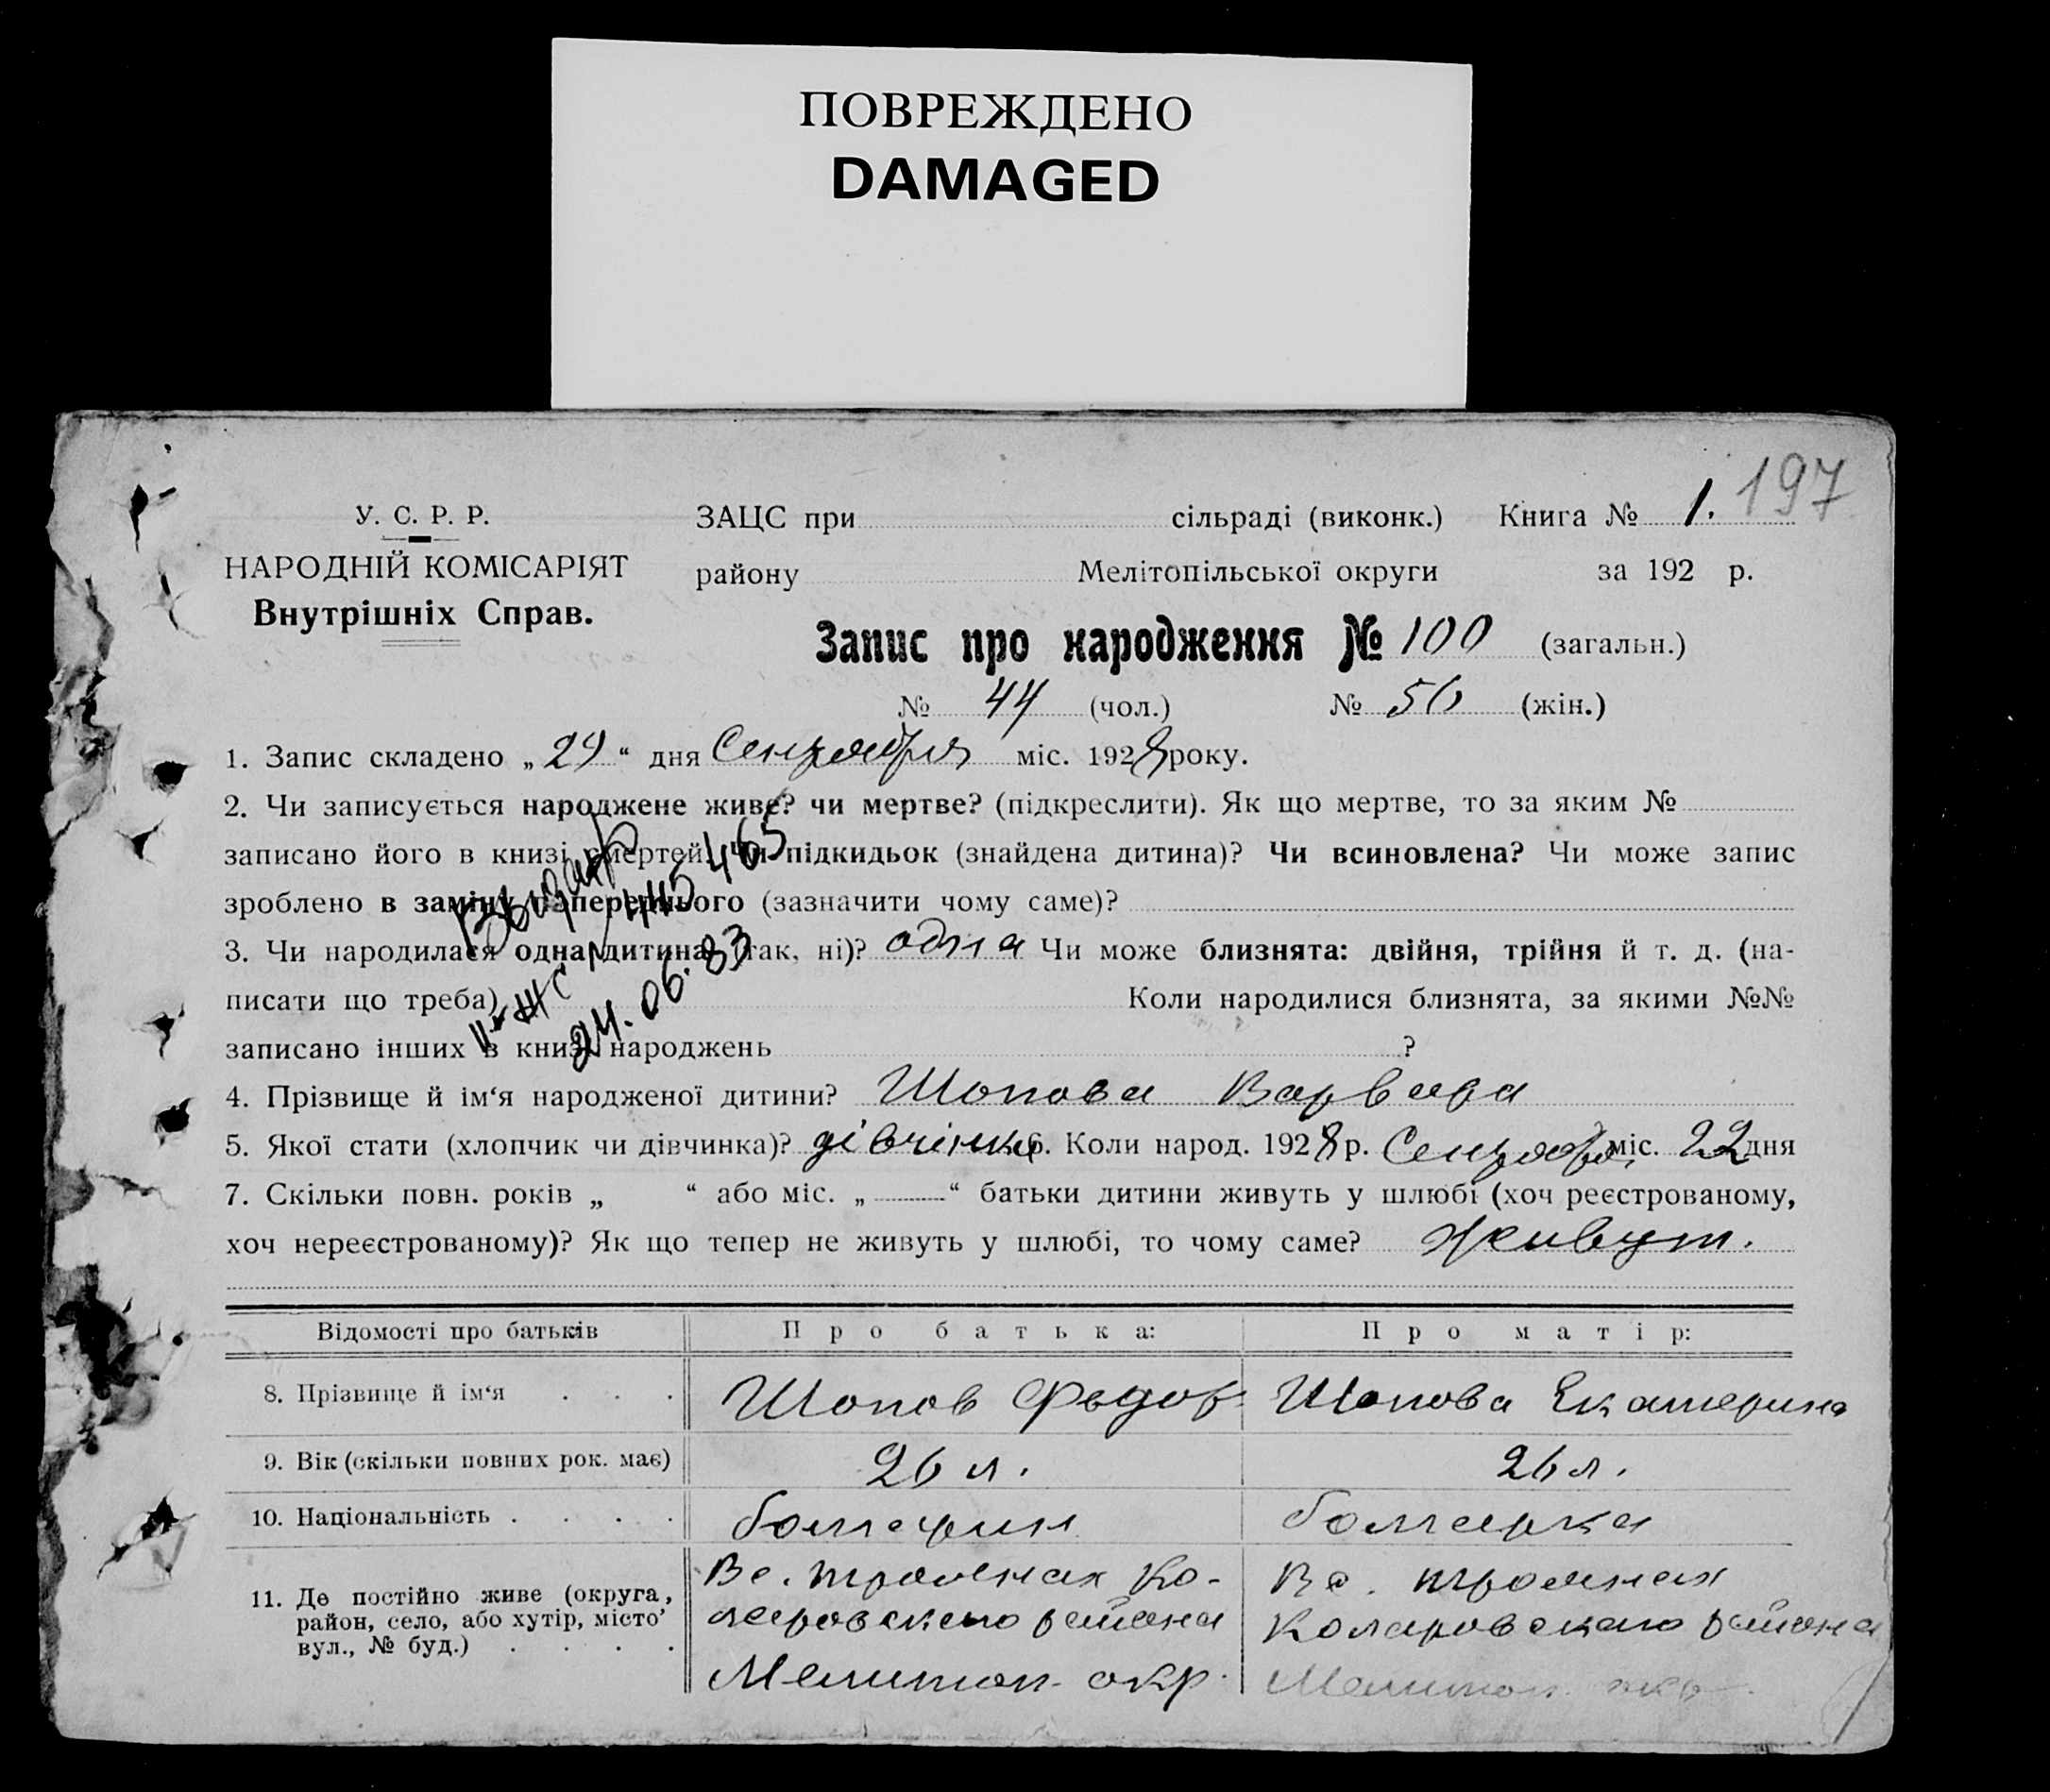 ПОВРЕЖДЕНО
DAMAGED
197
У. С. Р. Р.
НАРОДНІЙ КОМІСАРІЯТ
Внутрішніх Справ.
ЗАЦС при сільраді (виконк.) Книга № 1.
району Мелітопільської округи за 192 р.
Запис про народження № 100 (загальн.)
№ 44 (чол.) № 56 (жін.)
1. Запис складено „29“ дня Сентября міс. 1928 року.
2. Чи записується народжене живе? чи мертве? (підкреслити). Як що мертве, то за яким №
записано його в книзі смертей. Чи підкидьок (знайдена дитина)? Чи всиновлена? Чи може запис
зроблено в заміну попереднього (зазначити чому саме)?
3. Чи народилася одна дитина (так, ні)? одна Чи може близнята: двійня, трійня й т. д. (на-
писати що треба) Коли народилися близнята, за якими №№
записано інших в книзі народжень ?
24.06.83
4. Прізвище й ім‘я народженої дитини? Шопова Варвара
5. Якої стати (хлопчик чи дівчинка)? дівчінка 6. Коли народ. 1928 р. Сентября міс. 22 дня
7. Скільки повн. років „ “ або міс. „ “ батьки дитини живуть у шлюбі (хоч реєстрованому,
хоч нереєстрованому)? Як що тепер не живуть у шлюбі, то чому саме? Живут.
Відомості про батьків Про батька: Про матір:
8. Прізвище й ім‘я . . . Шопов Фьдор Шопова Екатерина
9. Вік (скільки повних рок. має) 26 л. 26 л.
10. Національність . . . . болгарин болгарка
11. Де постійно живе (округа,
район, село, або хутір, місто’
вул., № буд.) . . . .
Ко-
ларовского района
Мелитоп. окр.
Коларовского района
Мелитоп. окр.